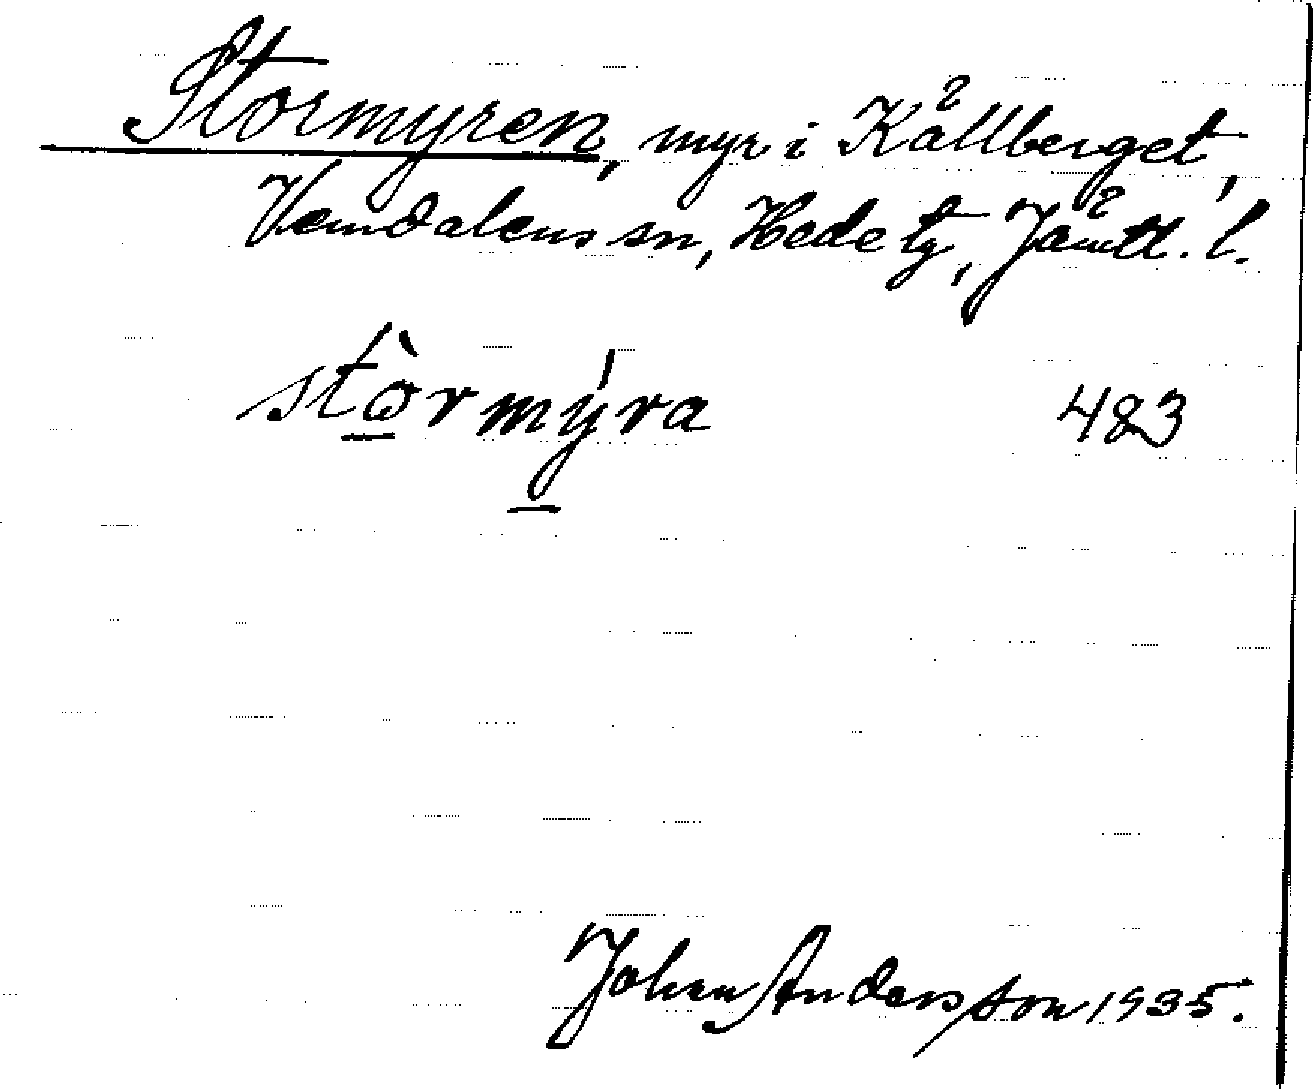 Stormyren, myr i Kållberget,
Vemdalens sn, Hede tg, Jämtl. l.
stò̱rmý̱ra 483
Johan Andersson 1935.